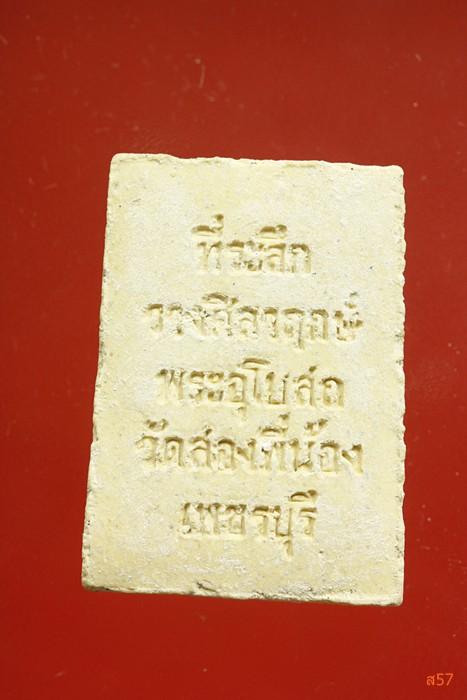 ที่ระลึก
วางศิลาฤกษ์
พระอุโบสถ
วัดสองพี่น้อง
เพชรบุรี
ส57